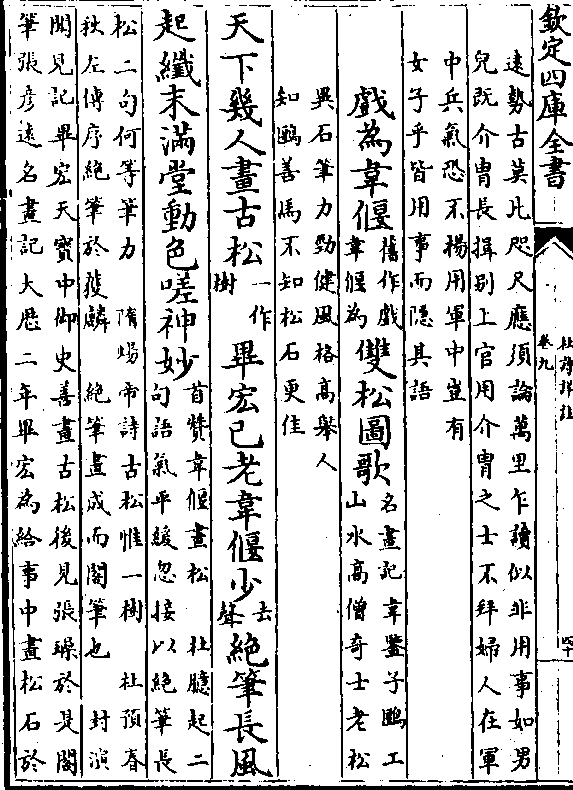 欽定四庫全書
杜詩詳註
卷九
遠勢古莫比咫尺應須論萬里乍讀似非用事如男
兒既介冑長揖别上官用介冑之士不拜婦人在軍
中兵氣恐不揚用軍中豈有
女子乎皆用事而隱其語
戲為韋偃雙松圖歌
舊作戲
韋偃為
名畫記韋鑒子鷗工
山水高僧奇士老松
異石筆力勁健風格高舉人
知鷗善馬不知松石更佳
天下幾人畫古松畢宏已老韋偃少絶筆長風
一作
樹
去
聲
起纖末滿堂動色嗟神妙
首贊韋偃畫松 杜臆起二
句語氣平緩忽接以絶筆長
松二句何等筆力 隋煬帝詩古松惟一樹 杜預春
秋左傳序絶筆於獲麟 絶筆畫成而閣筆也 封演
聞見記畢宏天寶中御史善畫古松後見張璪於是閣
筆張彦遠名畫記大厯二年畢宏為給事中畫松石於